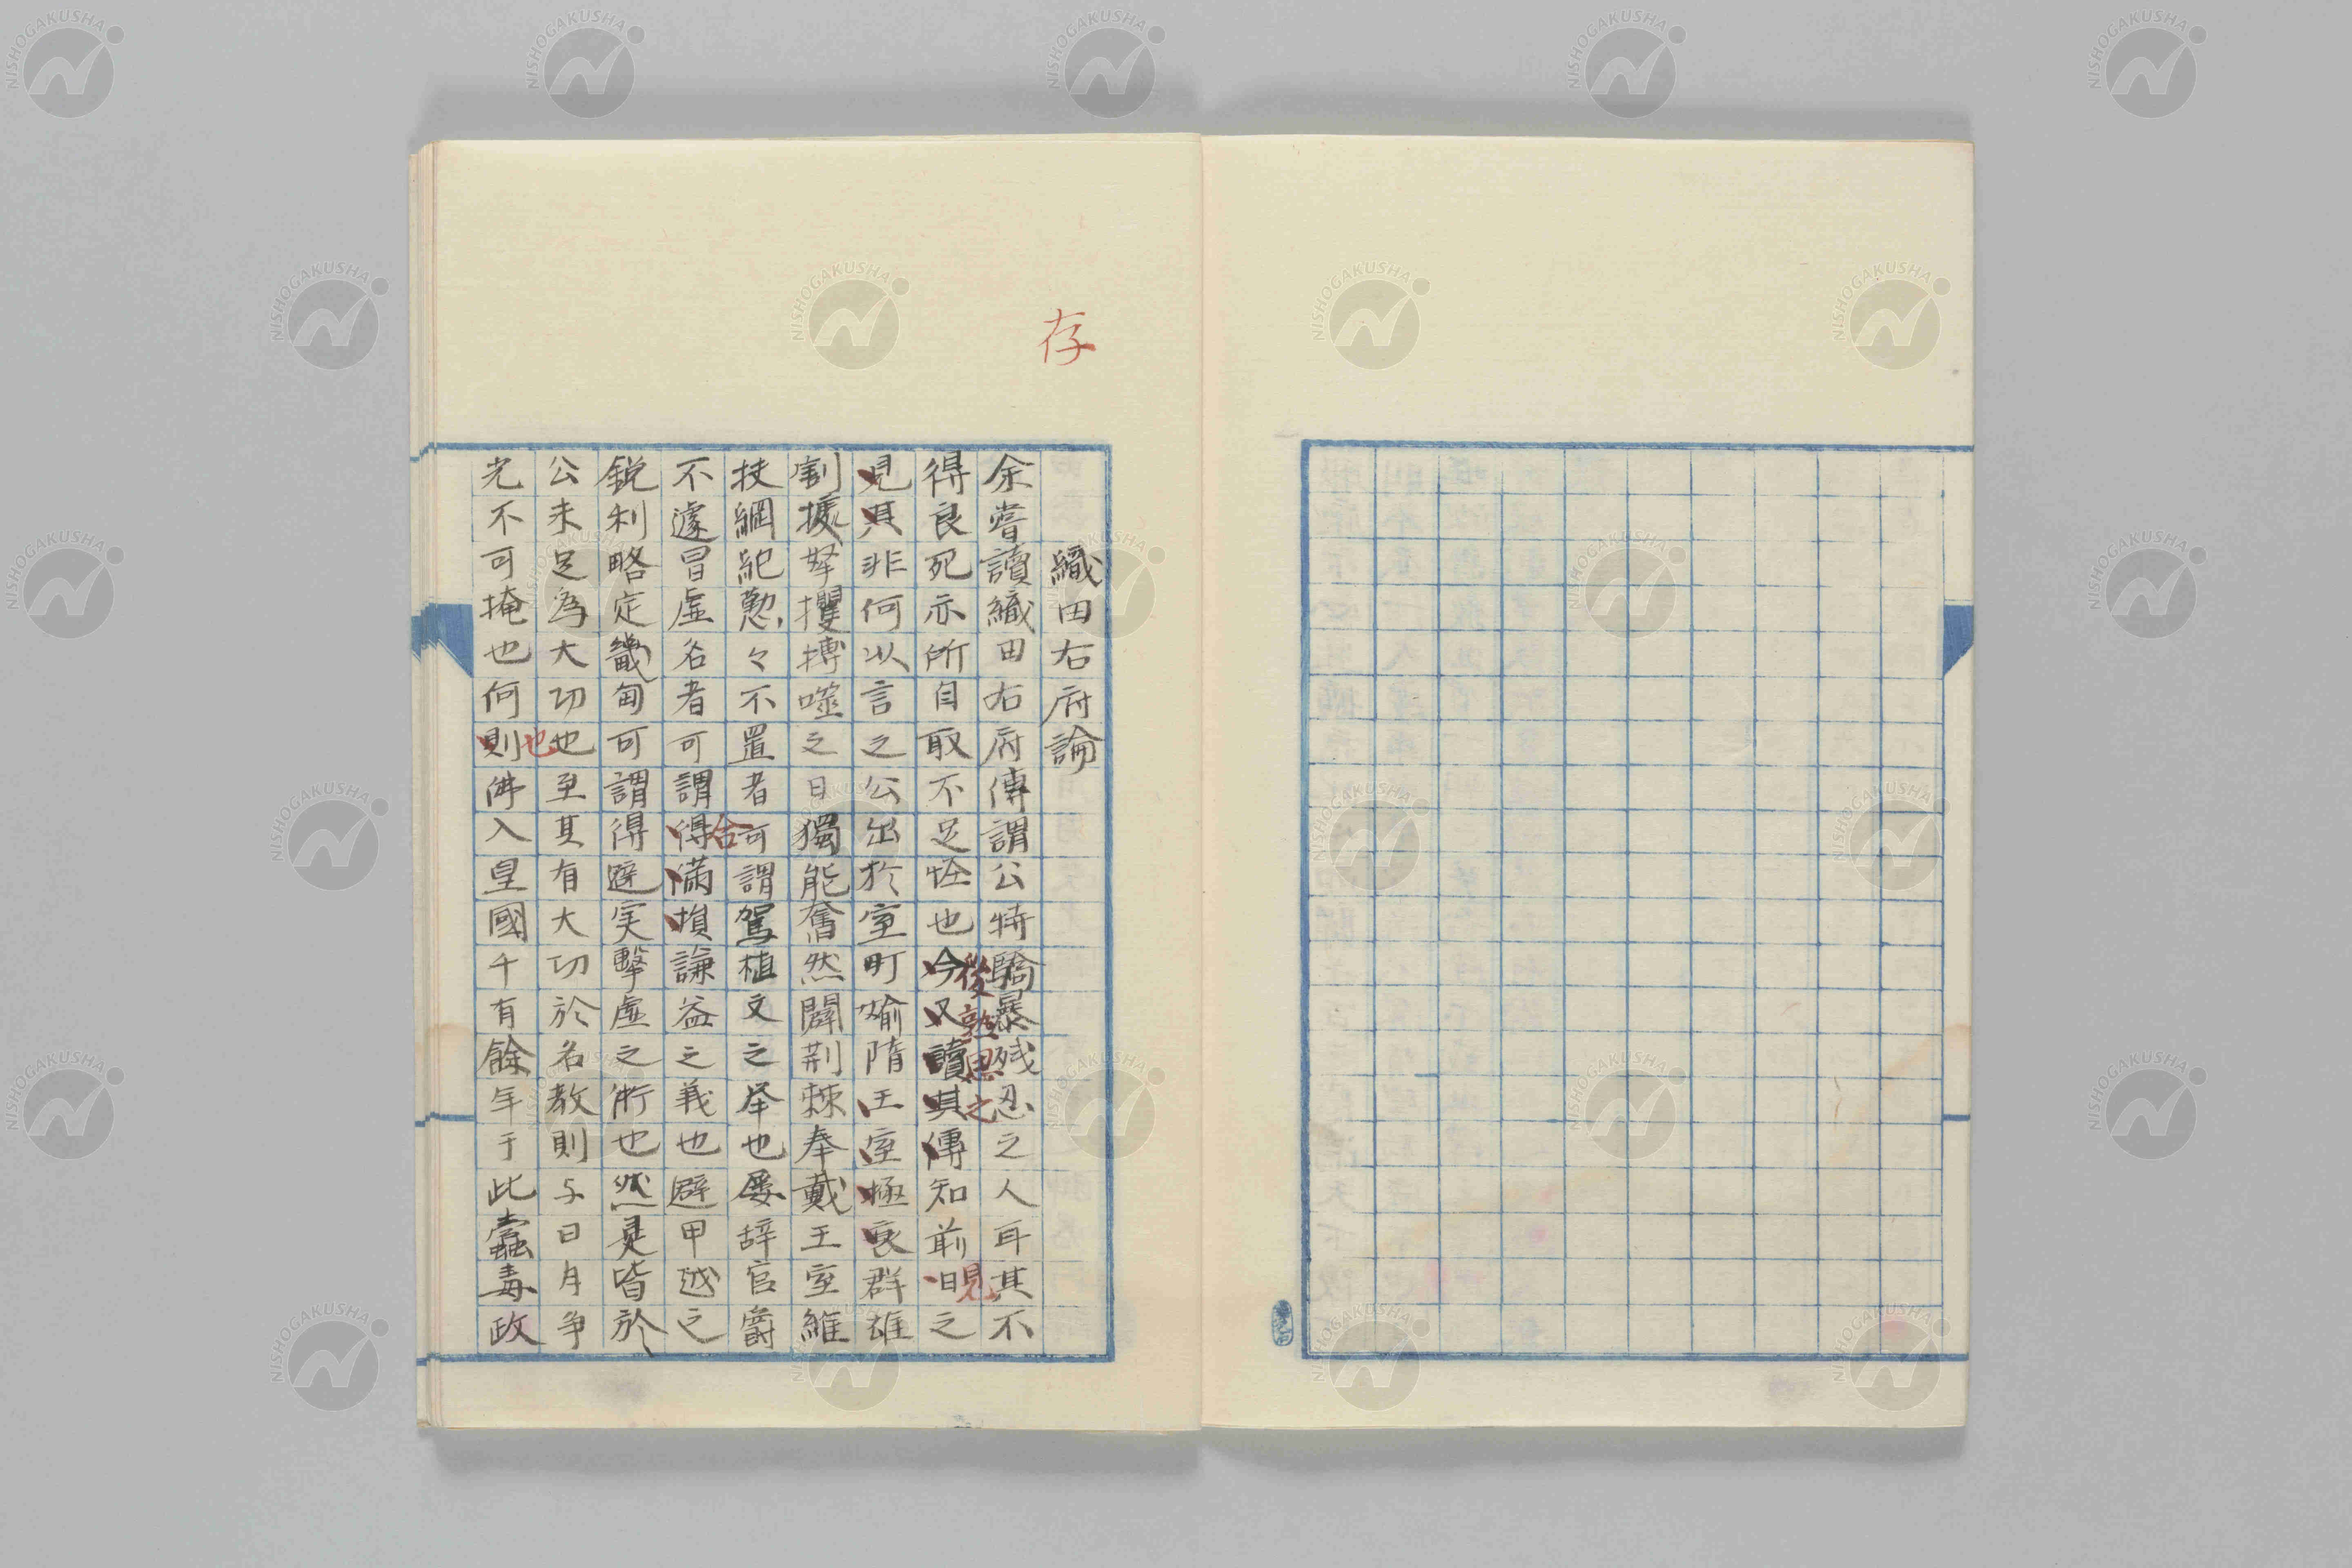 存
織田右府論
余嘗讀織田右府傳謂公特驕暴残忍之人耳其不
得良死亦所自取不足恠也今又讀其傳知前日之
後熟思之
見
見其非何以言之公出於室町喻隋王室極衰群雄
割據拏攫搏噬之日獨能奮然闢荆棘奉戴王室維
扶綱紀懃々不置者可謂駕植文之举也屡辞官爵
合
不遽冒虚名者可謂得満損謙益之義也避甲越之
鋭利略定畿甸可謂得避実擊虚之術也然是皆於
公未足為大切也至其有大切於名教則与日月争
也
光不可掩也何則佛入皇國千有餘年于此蠹毒政
NISHOGAKUSHA